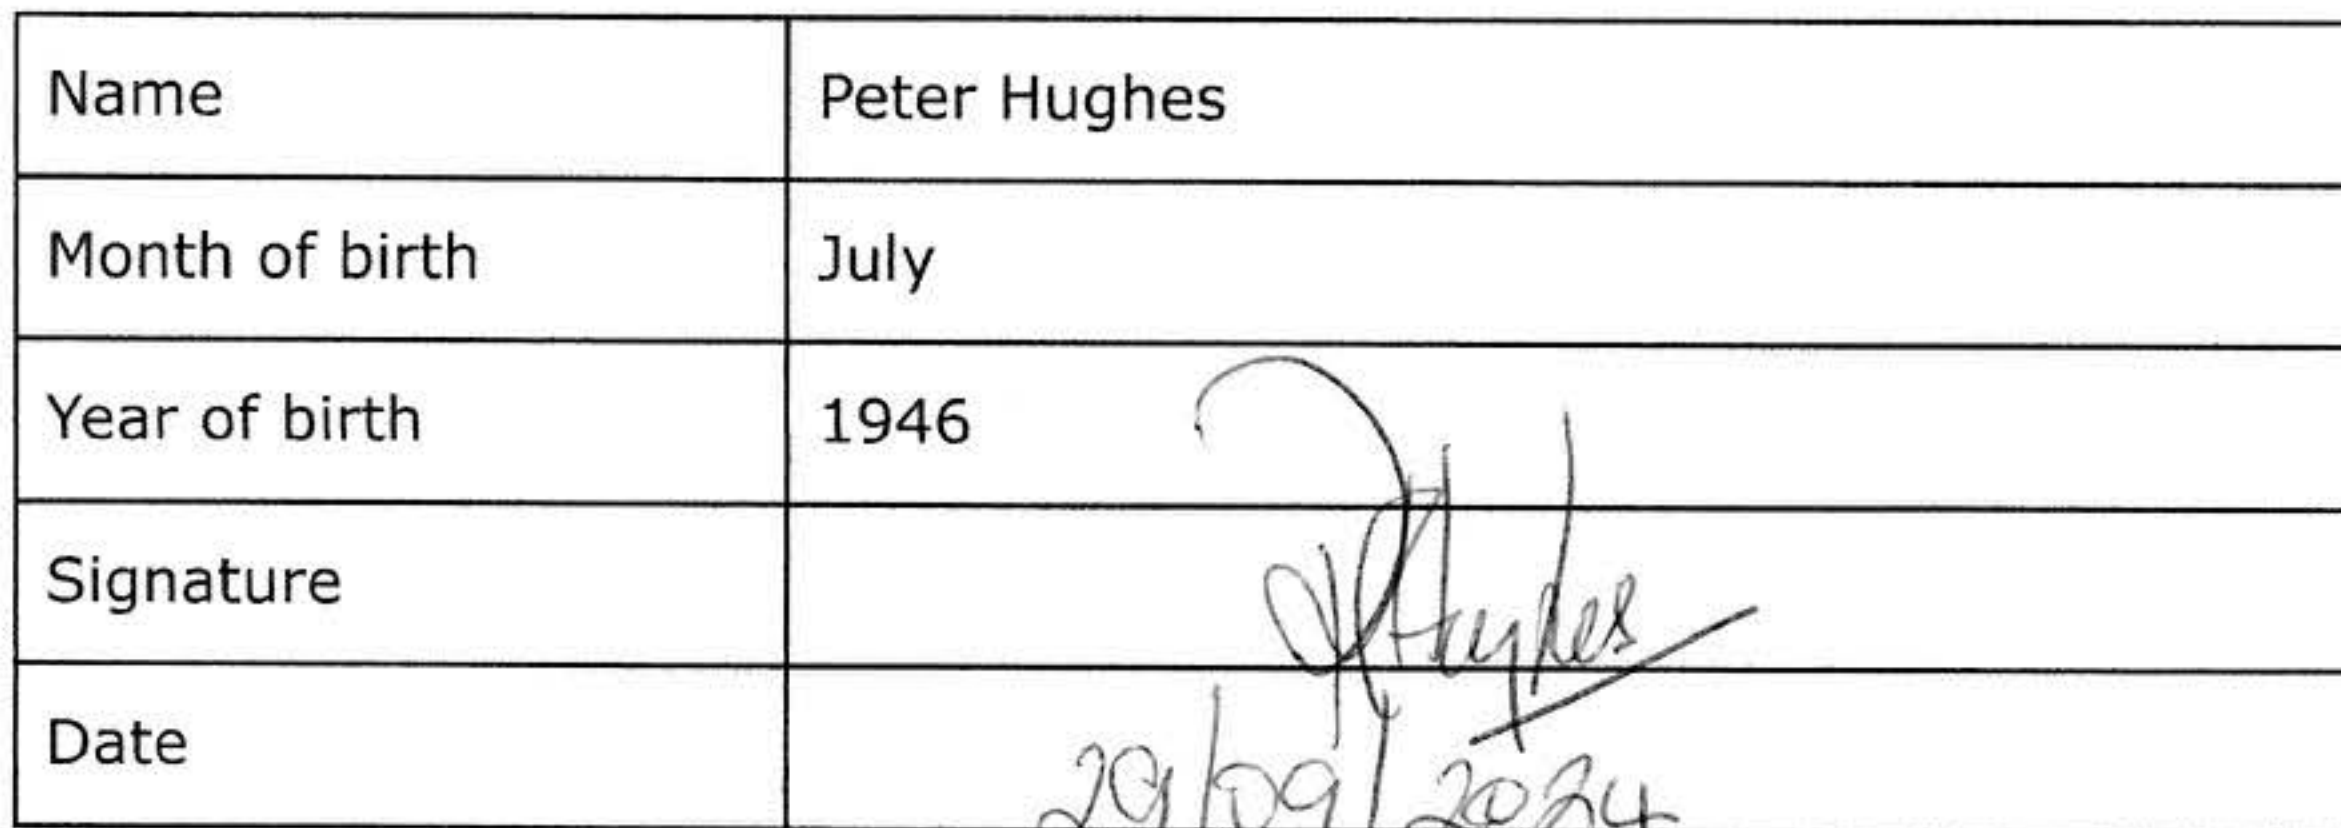 Name Peter Hughes
Month of birth July
Year of birth 1946
Signature PHughes
Date 29/09/2024